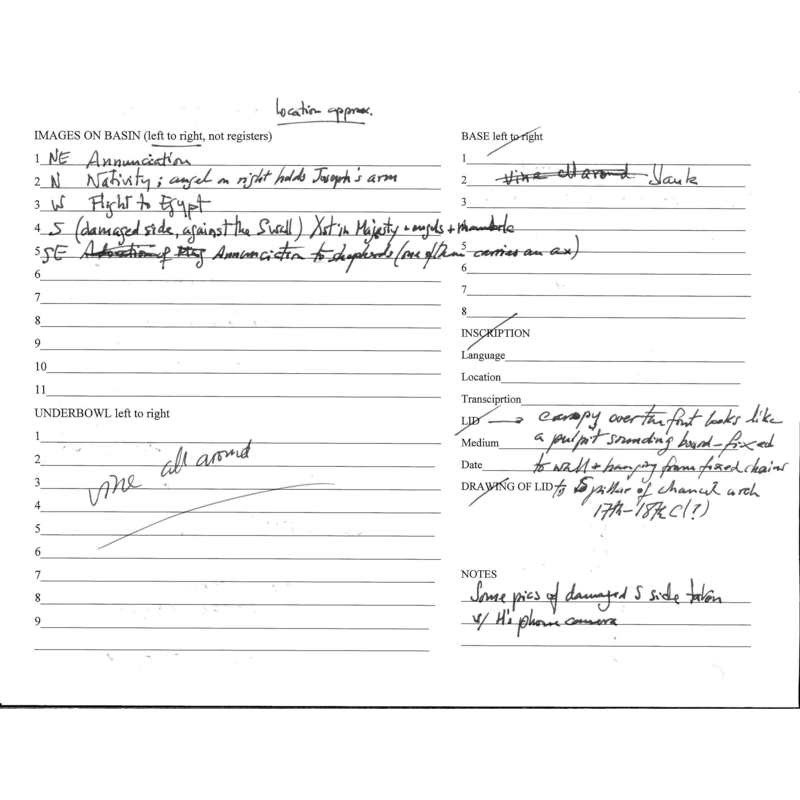 Location approx.
IMAGES ON BASIN (left to right, not registers)
1 NE Annunciation
2 N Nativity; angel on right holds Joseph's arm
3 W Flight to Egypt
4 S (damaged side, against the S wall) Xst in Majesty + angels +
5 SE Adoration of Magi Annunciation to shepherds (one of them carries an ax)
6
7
8
9
10
11
UNDERBOWL left to right
1
2
3 vine all around
4
5
6
7
8
9
BASE left to right
1
2 Vine all around
3
4
5
6
7
8
INSCRIPTION
Language
Location
Transciprtion
LID → canopy over the font looks like
Medium a pulpit sounding board - fixed
Date to wall + hanging from fixed chains
DRAWING OF LID to S pillar of chancel arch
17th-18th C(?)
NOTES
Some pics of damaged S side taken
w/ H's phone camera